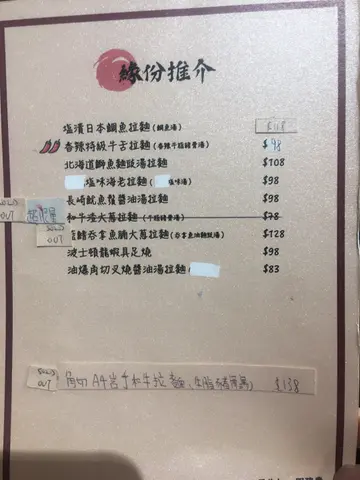 緣份推介
塩漬日本鯛魚拉麵(鯛魚湯) $118
香辣特級牛舌拉麵(香辣牛筋豬骨湯) $98
北海道鰤魚麵豉湯拉麵 $108
塩味海老拉麵( 塩味湯) $98
長崎魷魚鬚醬油湯拉麵 $98
SOLD OUT 和牛陸大蔥拉麵(牛筋豬骨湯) $78
SOLD OUT 鰭吞拿魚腩大蔥拉麵(吞拿魚油麵豉湯) $128
波士頓龍蝦具足燒 $98
油爆角切叉燒醬油湯拉麵( $83
SOLD OUT 角切 A4岩手和牛拉麵 $138